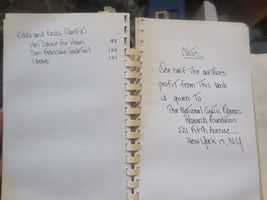 Odds and Ends (Cont'd)
Hot Sauce for Ham 99
San Francisco Cocktail 100
Ideas 101
NOTE
One half the author's
profit from this book
is given to
The National Cystic Fibrosis
Research Foundation
521 Fifth Avenue
New York 17, N.Y.